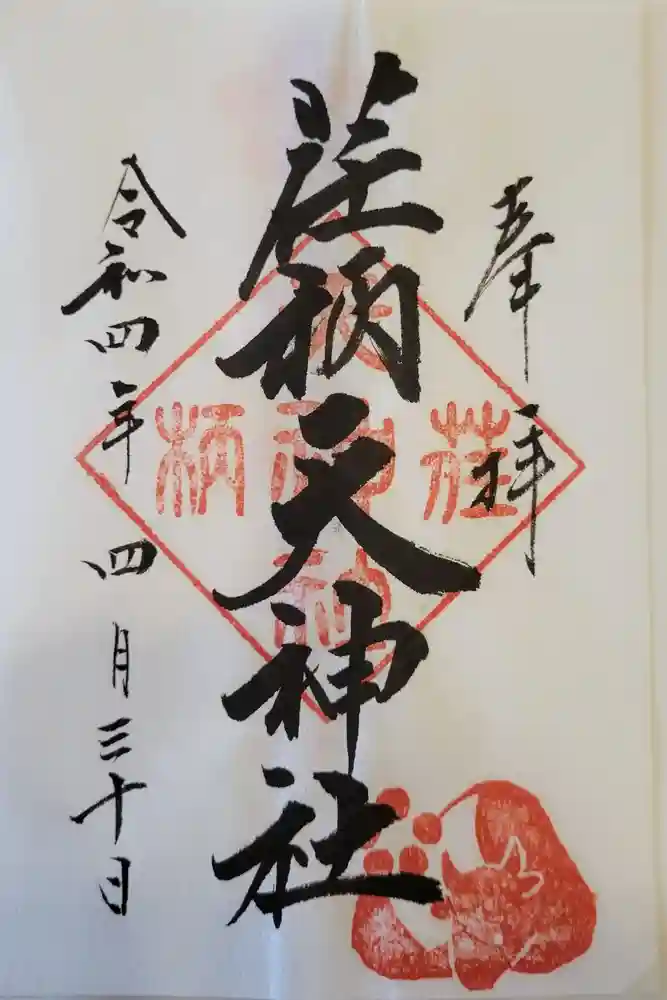 奉拝
荏柄天神社
令和四年四月三十日
荏
柄
天
神
社